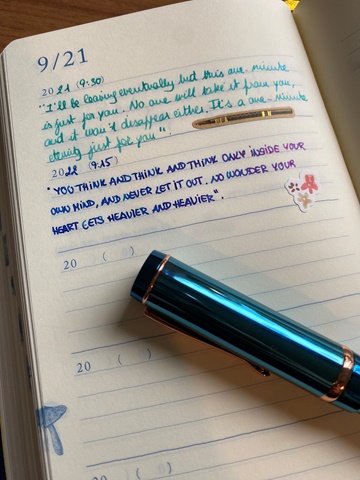 9/21
2021 (9:30)
"I'll be leaving eventually but this one minute
is just for you. No one will take it from you,
and it won't disappear either. It's a one-minute
eternity just for you".
2022 (9:15)
"YOU THINK AND THINK AND THINK ONLY INSIDE YOUR
OWN MIND, AND NEVER LET IT OUT. NO WONDER YOUR
HEART GETS HEAVIER AND HEAVIER".
20 ( )
20 ( )
20 ( )